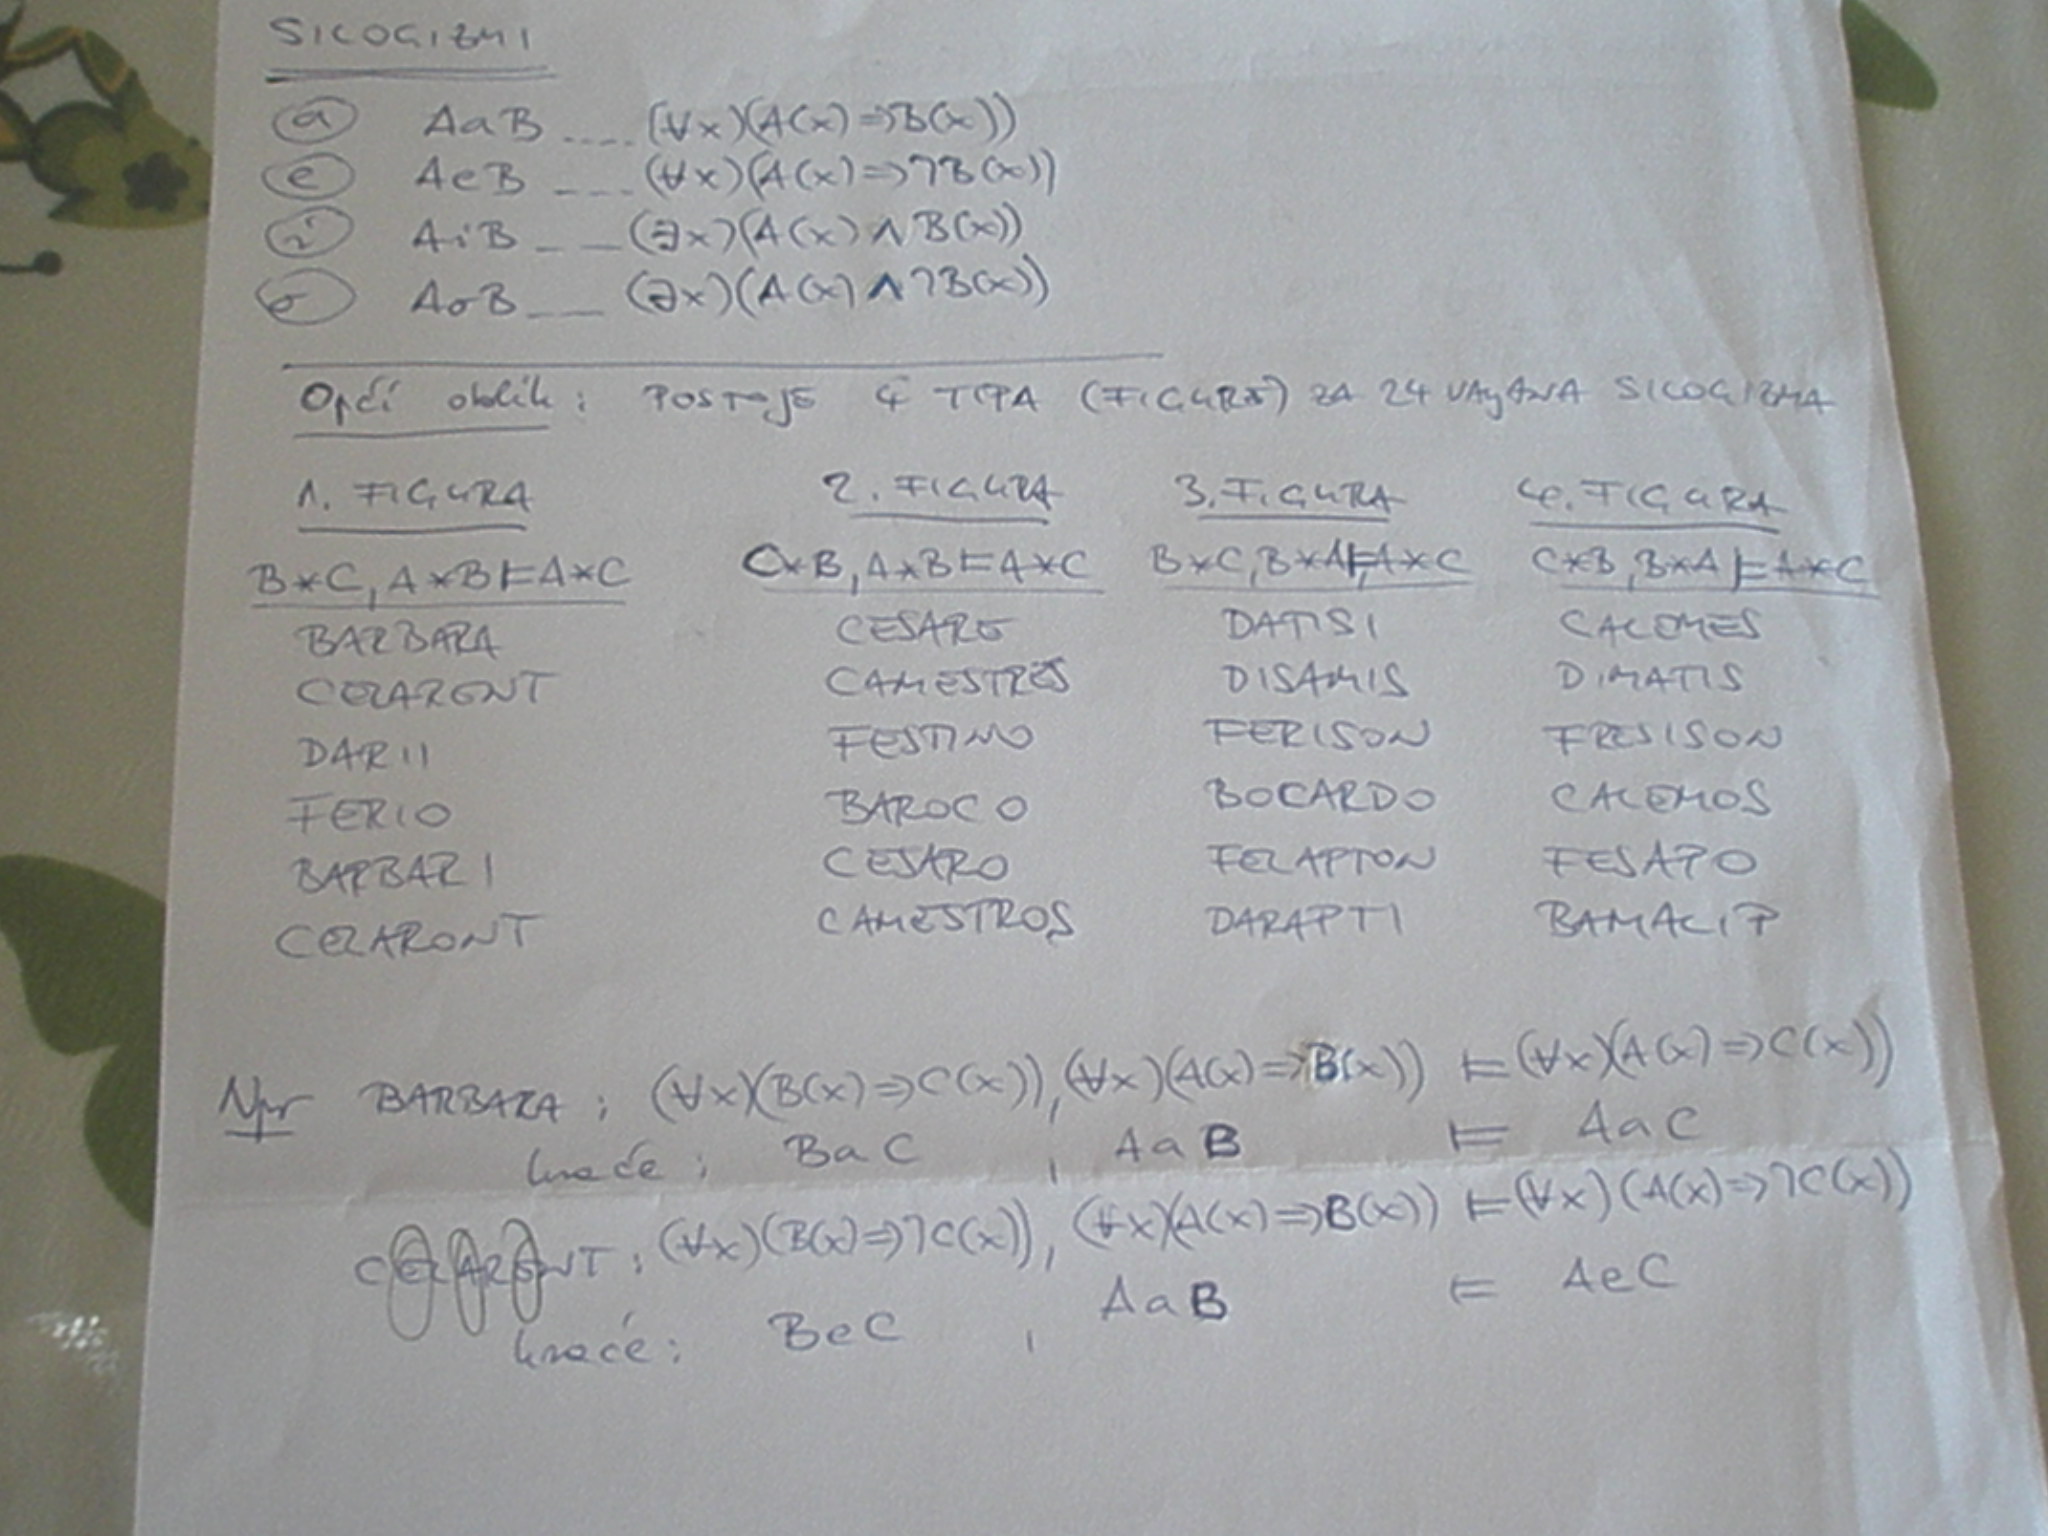 SILOGIZMI
(a) AaB ---- (∀x)(A(x)⇒B(x))
(e) AeB --- (∀x)(A(x)⇒¬B(x))
(i) AiB -- (∃x)(A(x)∧B(x))
(o) AoB -- (∃x)(A(x)∧¬B(x))
Opći oblik: POSTOJE 4 TIPA (FIGURE) ZA 24 VALJANA SILOGIZMA
1. FIGURA 2. FIGURA 3. FIGURA 4. FIGURA
B*C, A*B⊨A*C C*B, A*B⊨A*C B*C, B*A⊨A*C C*B, B*A⊨A*C
BARBARA CESARE DATISI CALEMES
CELARENT CAMESTRES DISAMIS DIMATIS
DARII FESTINO FERISON FRESISON
FERIO BAROCO BOCARDO CALEMOS
BARBARI CESARO FELAPTON FESAPO
CELARONT CAMESTROS DARAPTI BAMALIP
Npr BARBARA: (∀x)(B(x)⇒C(x)), (∀x)(A(x)⇒B(x)) ⊨ (∀x)(A(x)⇒C(x))
kraće: BaC , AaB ⊨ AaC
CELARENT: (∀x)(B(x)⇒¬C(x)), (∀x)(A(x)⇒B(x)) ⊨ (∀x)(A(x)⇒¬C(x))
kraće: BeC , AaB ⊨ AeC